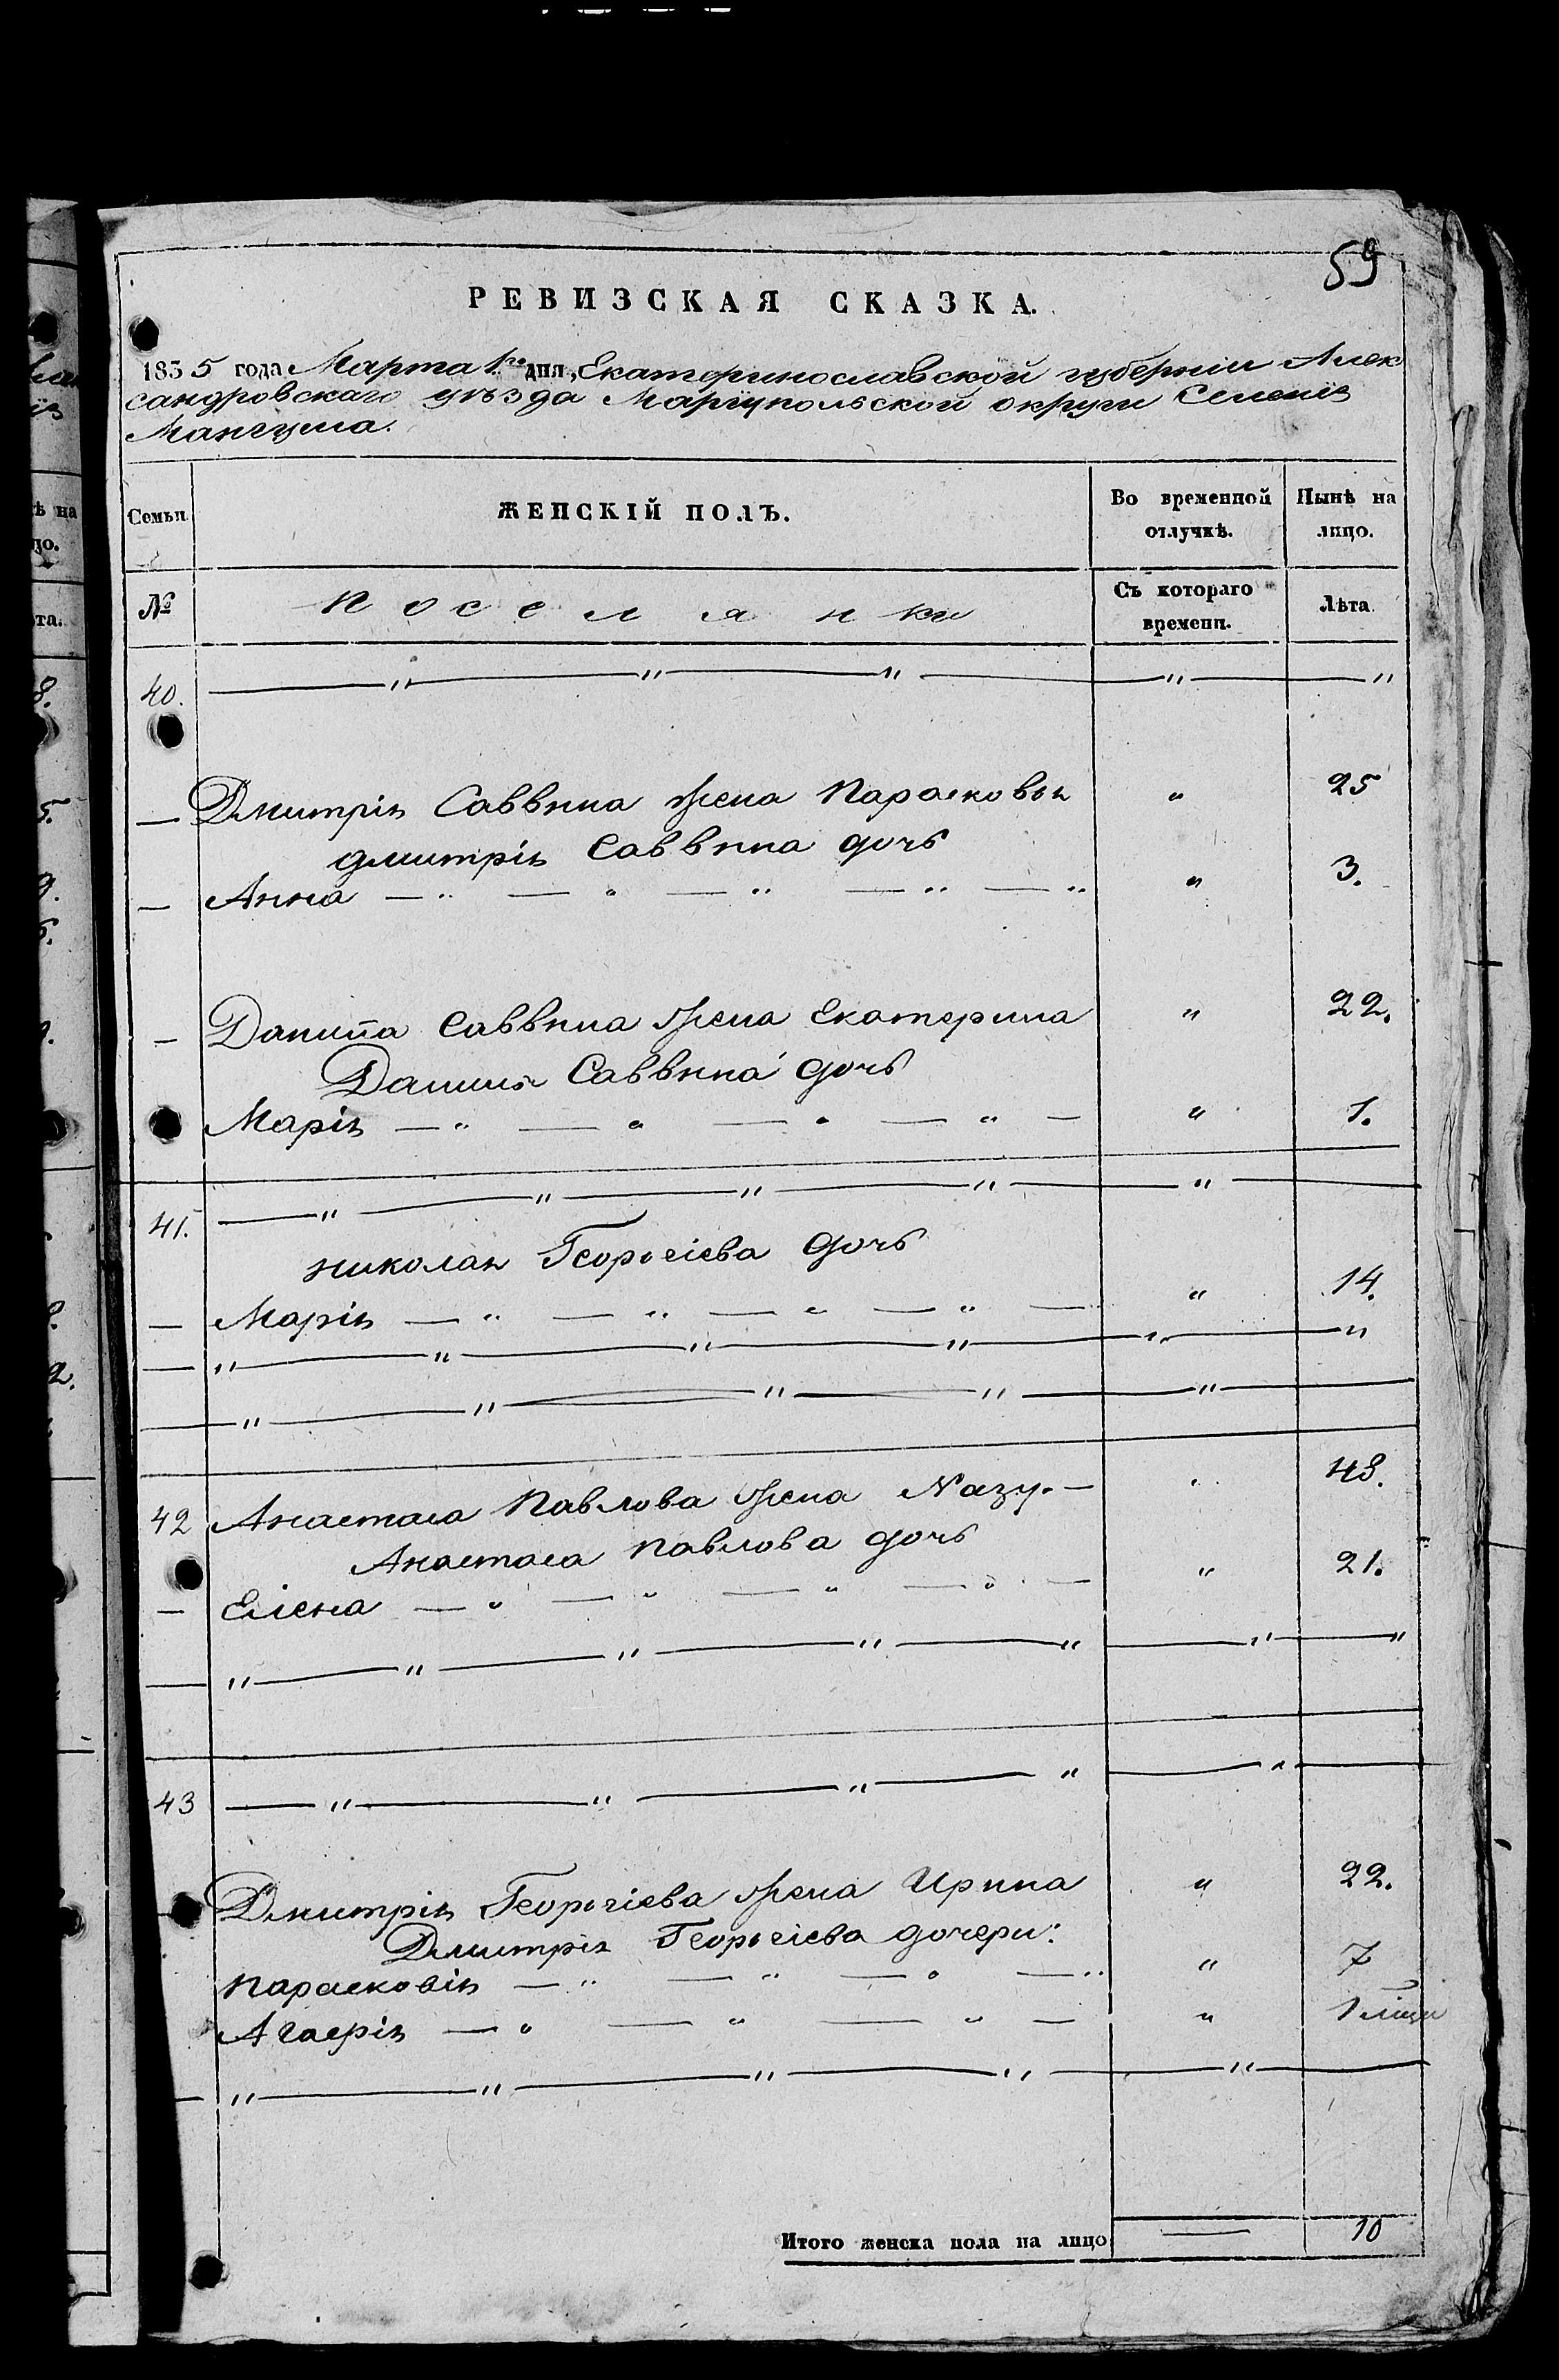 59
РЕВИЗСКАЯ СКАЗКА.
1835 года Марта 1го дня, Екатеринославской губерніи Алек
сандровскаго уѣзда Маріупольской округи Селенія
Мангуша.
Семьи. ЖЕНСКІЙ ПОЛЪ. Во временной отлучкѣ. Нынѣ на лицо.
№ Поселянки Съ котораго времени. Лѣта.
40. — " — " — " — " — "
— Дмитрія Саввина жена Парасковья " 25
Дмитрія Саввина дочь
— Анна — " — " — " — " — " " 3.
— Данила Саввина жена Екатерина " 22.
Данила Саввина дочь
Марія — " — " — " — " — " 1.
41. — " — " — " — " — "
Николая Георгіева дочь
— Марія — " — " — " — " — " 14.
— " — " — " — " — " — "
— " — " — " — " — "
42 Анастаса Павлова жена Назу. — " 48.
Анастаса Павлова дочь
— Елена — " — " — " — " — " 21.
— " — " — " — " — " — " — "
43 — " — " — " — " — "
Дмитрія Георгіева жена Ирина " 22.
Дмитрія Георгіева дочери:
Парасковія — " — " — " — " " 7
— " — " — " — " 1
— " — " — " — " — "
Итого женска пола на лицо — 10